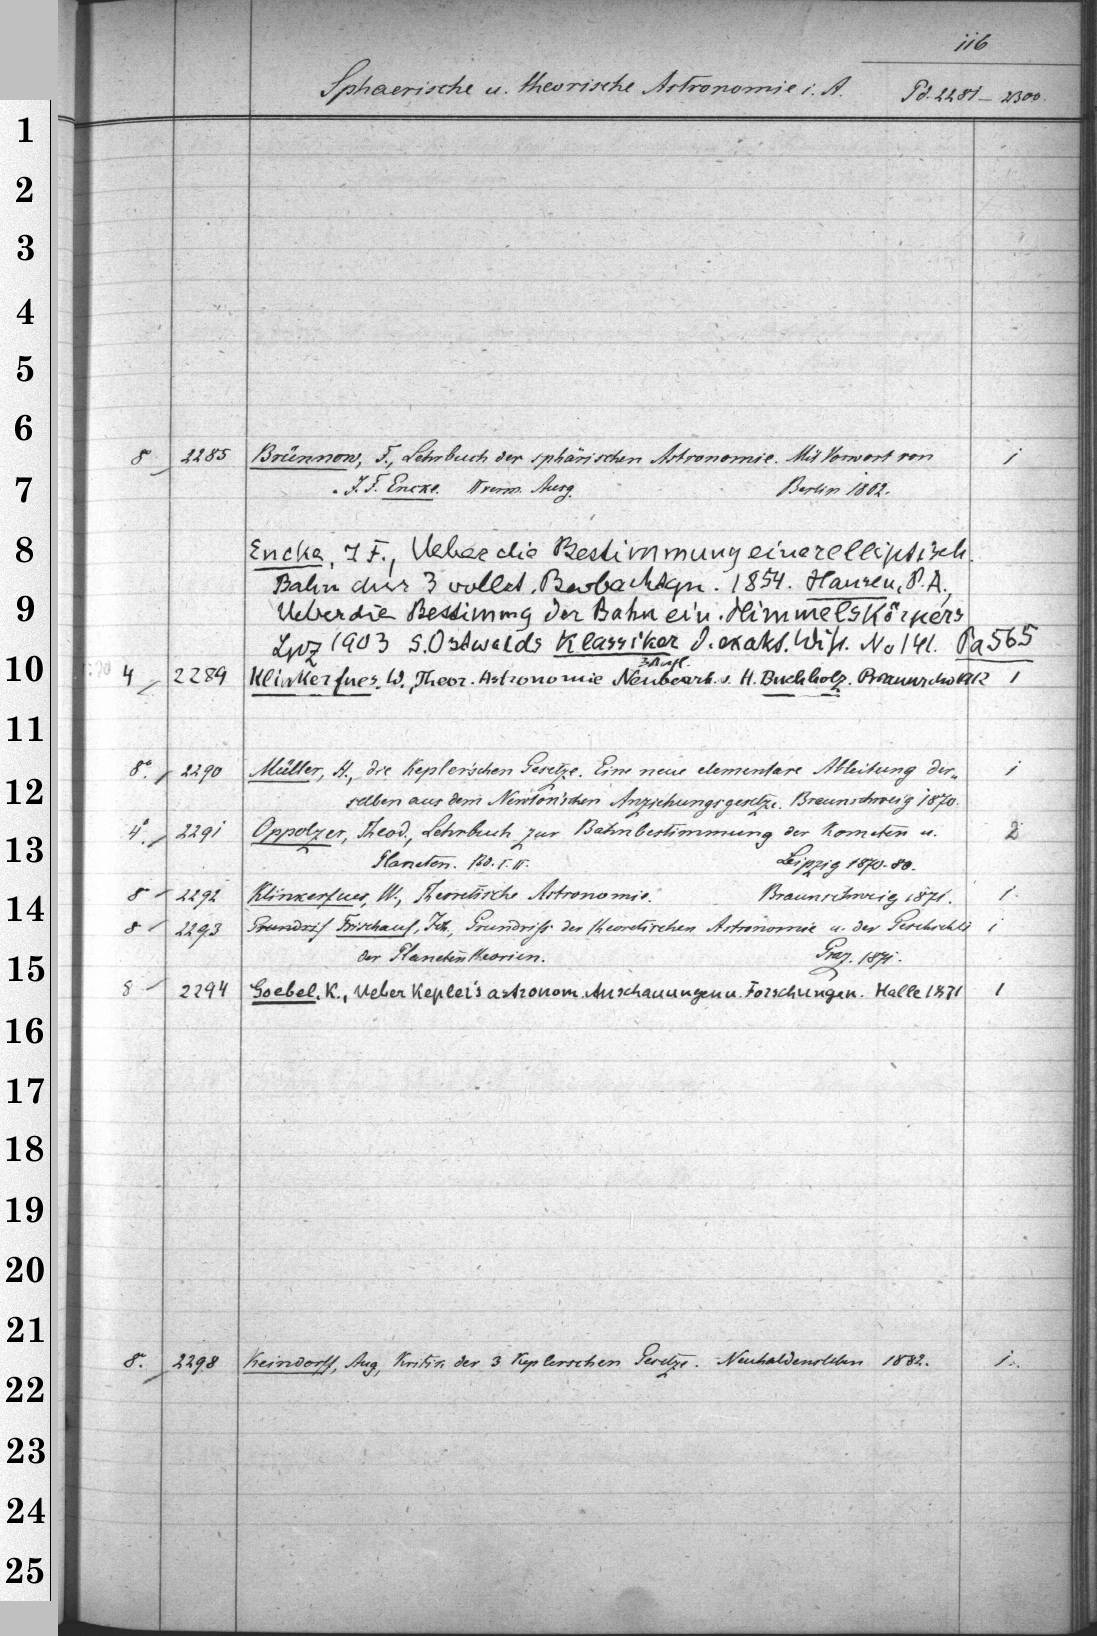 116
Sphaerische u. theorische Astronomie i. A. Pd. 2281 – 2300.
1
2
3
4
5
6
8° 2285 Brünnow, F., Lehrbuch der sphärischen Astronomie. Mit Vorwort von 1
7 J. F. Encke. II verm. Ausg. Berlin 1862.
8 Encke, J. F., Ueber die Bestimmung einer elliptisch.
Bahn aus 3 vollst. Beobachtgn. 1854. Hansen, P. A.,
9 Ueber die Bestimmg der Bahn ein. Himmelskörpers
Lpz 1903 S. Ostwalds Klassiker d. exakt. Wiss. No 141. Pa 565
3 Aufl.
10 4 2289 Klinkerfues, W., Theor. Astronomie Neubearb. v. H. Buchholz. Braunschw 1912 1
11
8° 2290 Müller, H., die Kepler'schen Gesetze. Eine neue elementare Ableitung der- 1
12 selben aus dem Newton'schen Anziehungsgesetze. Braunschweig 1870.
4° 2291 Oppolzer, Theod., Lehrbuch zur Bahnbestimmung der Kometen u. 2
13 Planeten. Bd. I. II. Leipzig 1870-80.
8° 2292 Klinkerfues, W., Theoretische Astronomie. Braunschweig 1871. 1
14
8° 2293 Grundriss Frischauf, Joh., Grundriss der theoretischen Astronomie u. der Geschichte 1
15 der Planetentheorien. Graz. 1871.
8 2294 Goebel, K., Ueber Keplers astronom. Anschauungen u. Forschungen. Halle 1871 1
16
17
18
19
20
21
8° 2298 Keindorff, Aug., Kritik der 3 Keplerschen Gesetze. Neuhaldensleben 1882. 1
22
23
24
25